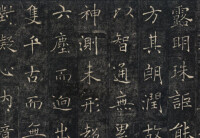 露明珠詎能
方其朗潤故
以智通無累
神測未形超
六塵而迥出
隻千古而無
對凝心內境